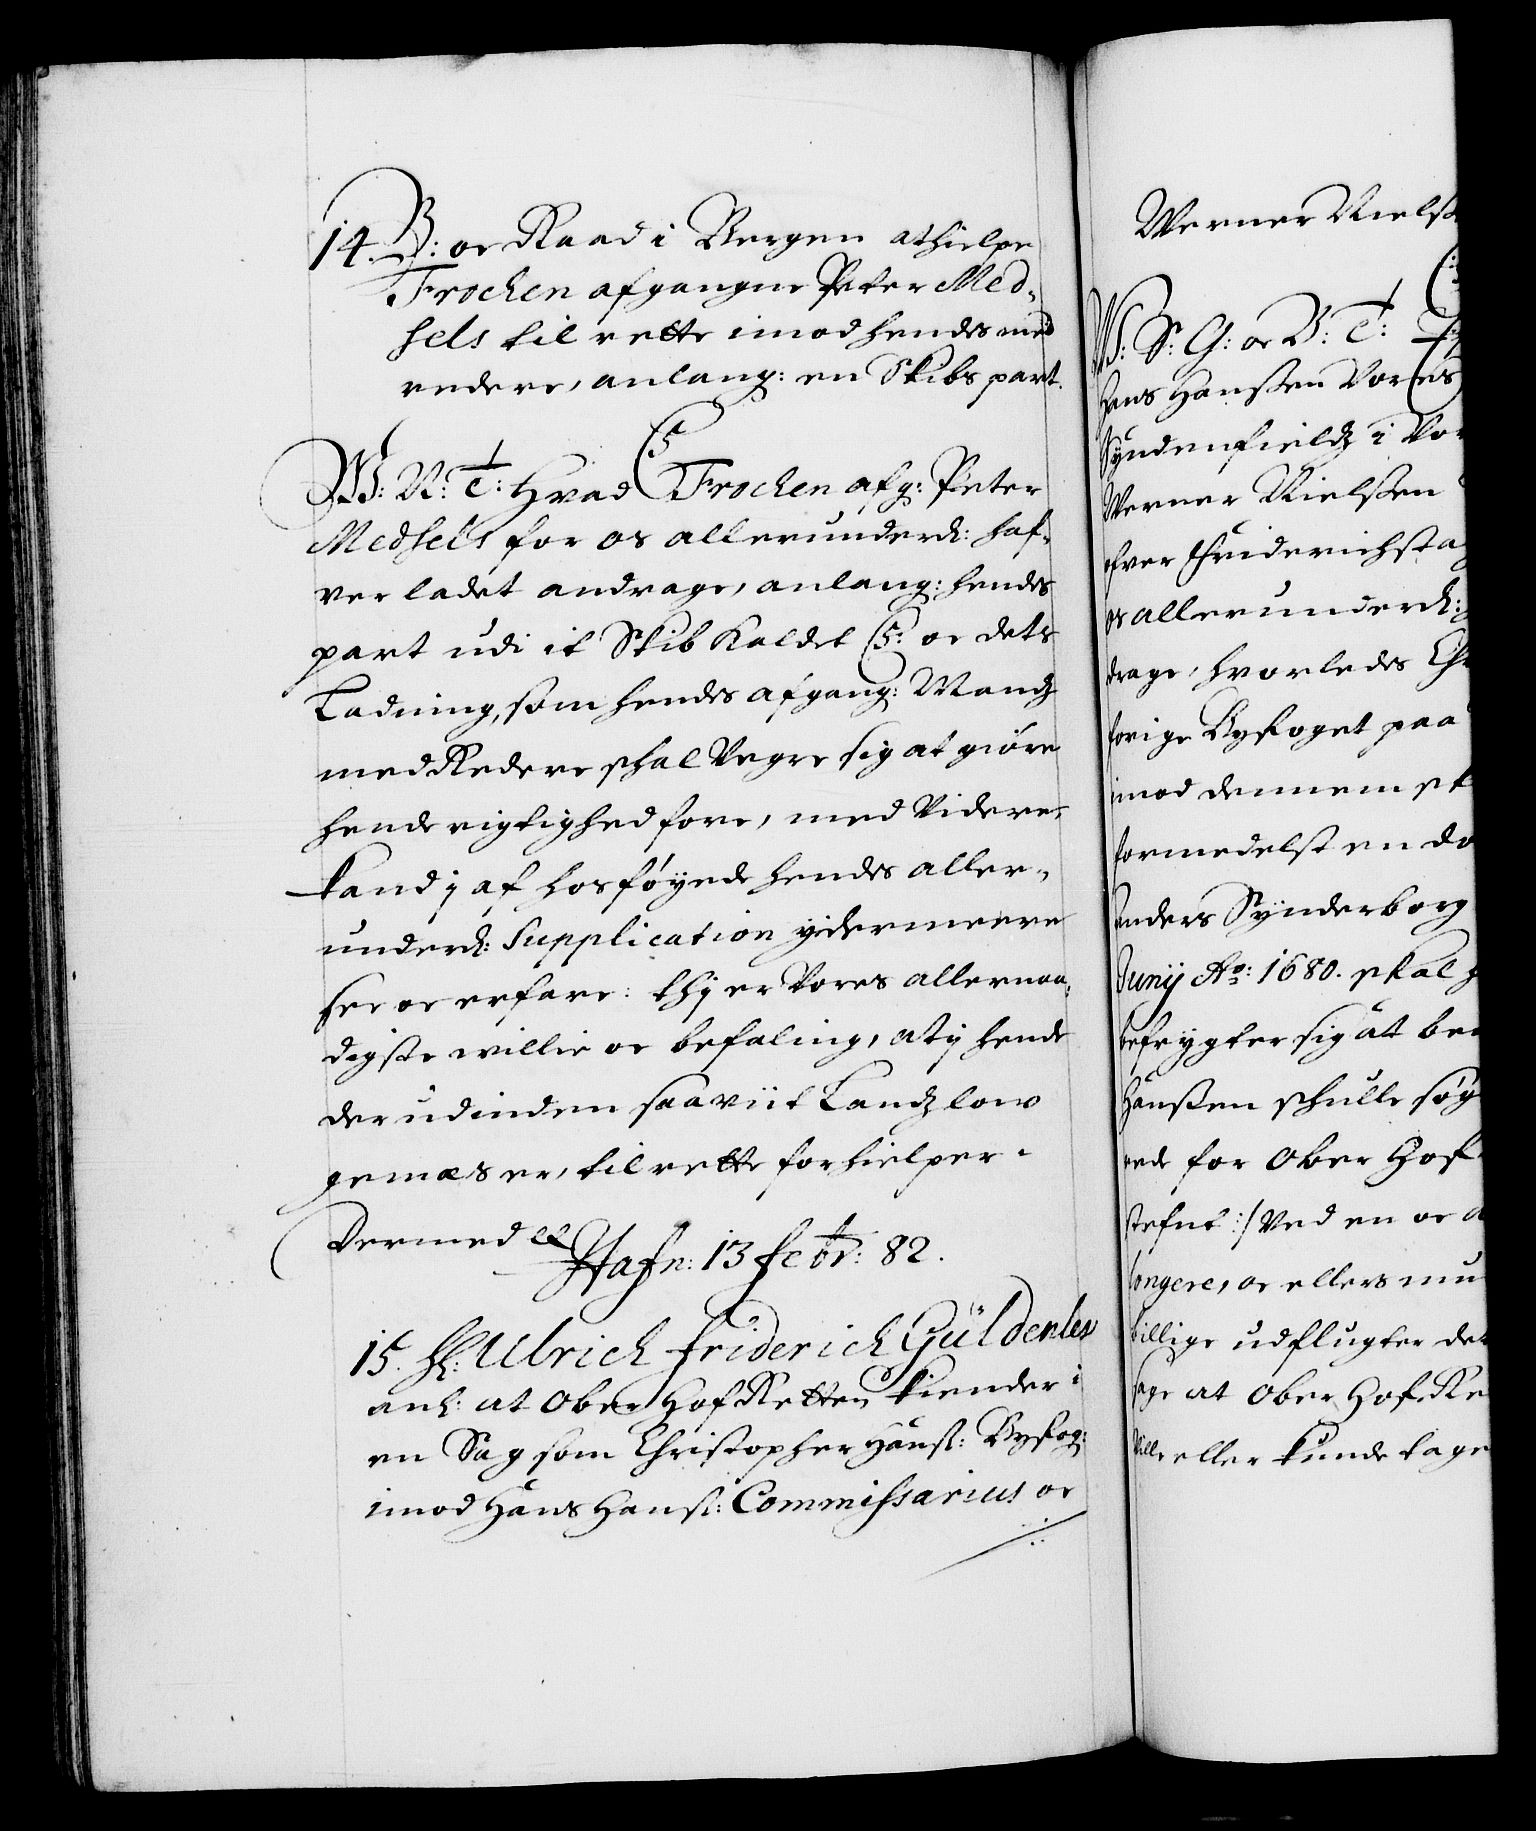 14. B: oc Raad i Bergen at hielpe
Trochen afgangne Peter Med-
sels til rette imod hendes med
redere, anlang: en Skibs part.
W: N: T: Hvad (5 Trochen afg: Peter
Medsels for os allerunderd: haf-
ver ladet andrage, anlang: hendes
part udi it Skib kaldet (5: oc dets
Ladning, som hendes afgang: Mandz
med Redere schal Vegre sig at giöre
hende rigtighed fore, med Videre,
kand j af hosföyede hendes aller-
underd: Supplication ydermeere
see oc erfare: thj er Vores allernaa-
digste willie oc befaling, at j hende
der udinden saaviit Landz low
gemæs er, til rette forhielper.
Dermed etc Hafn: 13 febr: 82.
15. H: Ulrich friderich Güldenlew
anl: at Ober Hof Retten kiender i
en Sag som Christopher Hanss: Byfog:
imod Hans Hanss: Commissarius oc
Werner Niels
W: S: G: oc B: T:
Hans Hanssen Vores
Syndenfieldz i Vor
Werner Nielssen
ofver Friderichsta
os allerunderd:
drage, hvorledes Chr
forige Byfoget paa
imod dennem st
formedelst en do
Anders Synderborg
Junij Ao: 1680. skal
befrygter sig at be
Hanssen schulle søg
rede for Ober Hof
stefnt :/ Ved en oc a
longere, oc ellers mu
billige udflugter det
sage at Ober Hof Re
Ville eller kunde tage